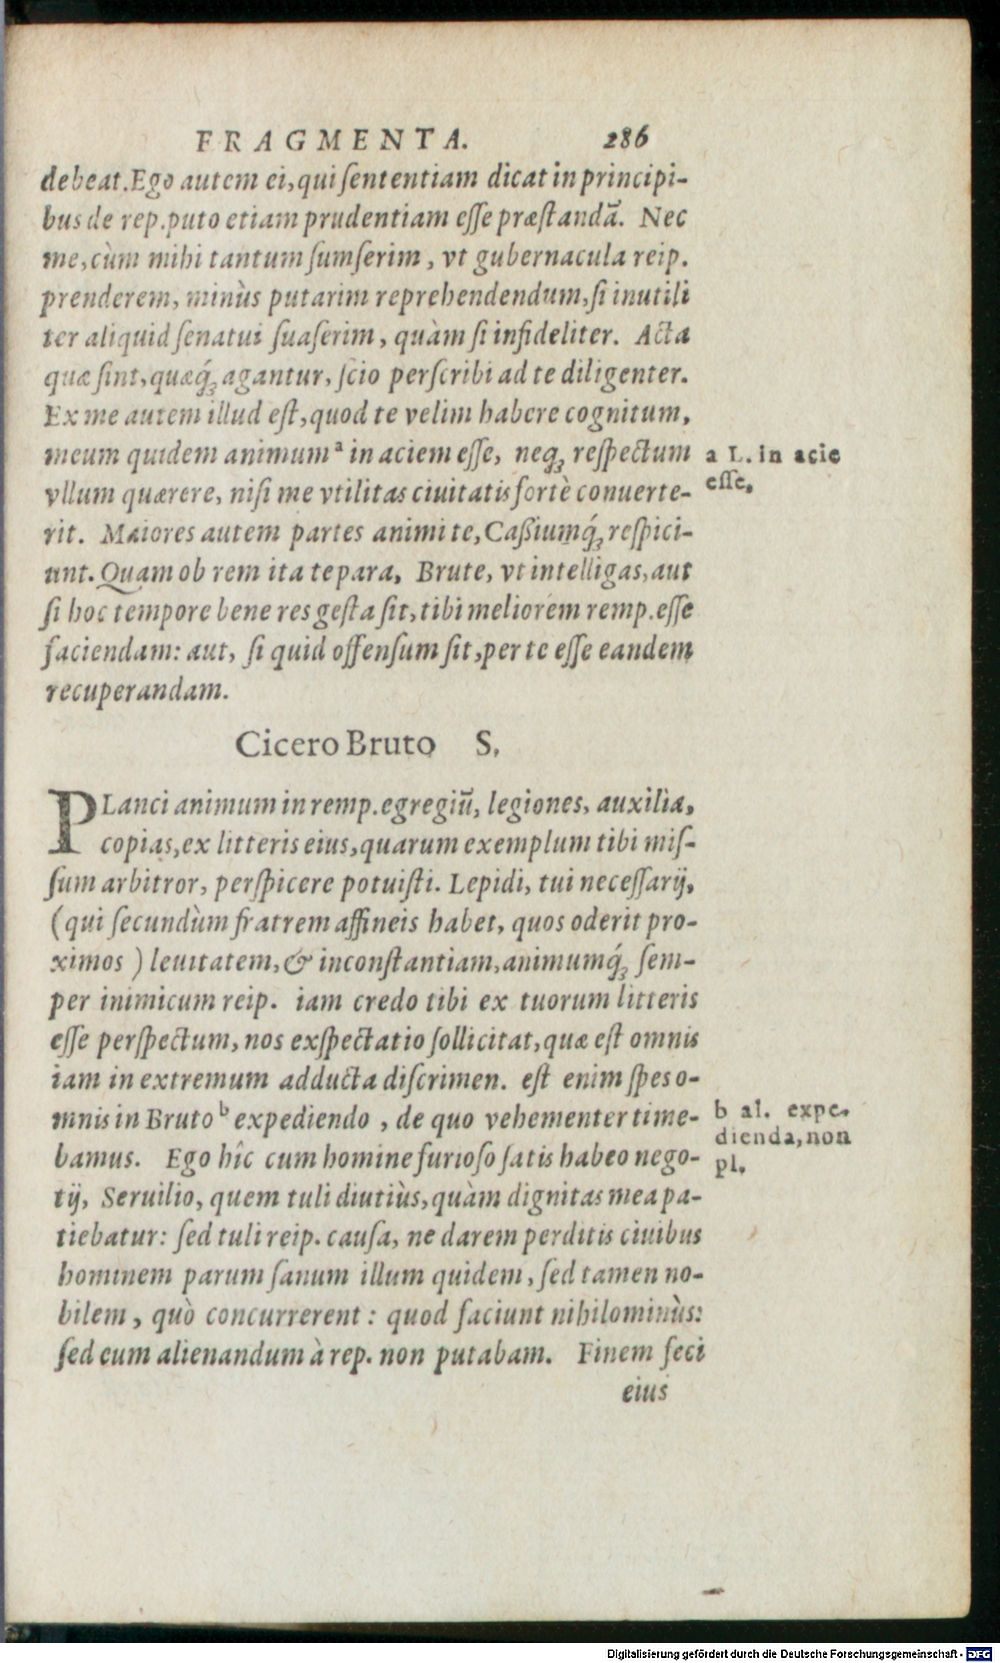 FRAGMENTA. 286
debeat. Ego autem ei, qui ſententiam dicat in principi-
bus de rep. puto etiam prudentiam eſſe præſtandā. Nec
me, cùm mihi tantum ſumſerim, vt gubernacula reip.
prenderem, minùs putarim reprehendendum, ſi inutili
ter aliquid ſenatui ſuaſerim, quàm ſi infideliter. Acta
quæ ſint, quæq́ꝫ agantur, ſcio perſcribi ad te diligenter.
Ex me autem illud eſt, quod te velim habere cognitum,
meum quidem animum ª in aciem eſſe, neqꝫ reſpectum
a L. in acie
eſſe.
vllum quærere, niſi me vtilitas ciuitatis fortè conuerte-
rit. Maiores autem partes animi te, Caßiumq́ꝫ reſpici-
unt. Quam ob rem ita te para, Brute, vt intelligas, aut
ſi hoc tempore bene res geſta ſit, tibi meliorem remp. eſſe
faciendam: aut, ſi quid offenſum ſit, per te eſſe eandem
recuperandam.
Cicero Bruto S.
PLanci animum in remp. egregiū, legiones, auxilia,
copias, ex litteris eius, quarum exemplum tibi miſ-
ſum arbitror, perſpicere potuiſti. Lepidi, tui neceſſarij,
(qui ſecundùm fratrem affineis habet, quos oderit pro-
ximos) leuitatem, & inconſtantiam, animumq́ꝫ ſem-
per inimicum reip. iam credo tibi ex tuorum litteris
eſſe perſpectum, nos exſpectatio ſollicitat, quæ eſt omnis
iam in extremum adducta diſcrimen. eſt enim ſpes o-
mnis in Bruto ᵇ expediendo, de quo vehementer time-
b al. expe-
dienda, non
pl.
bamus. Ego hîc cum homine furioſo ſatis habeo nego-
tij, Seruilio, quem tuli diutiùs, quàm dignitas mea pa-
tiebatur: ſed tuli reip. cauſa, ne darem perditis ciuibus
hominem parum ſanum illum quidem, ſed tamen no-
bilem, quò concurrerent: quod faciunt nihilominùs:
ſed eum alienandum à rep. non putabam. Finem feci
eius
Digitalisierung gefördert durch die Deutsche Forschungsgemeinschaft - DFG